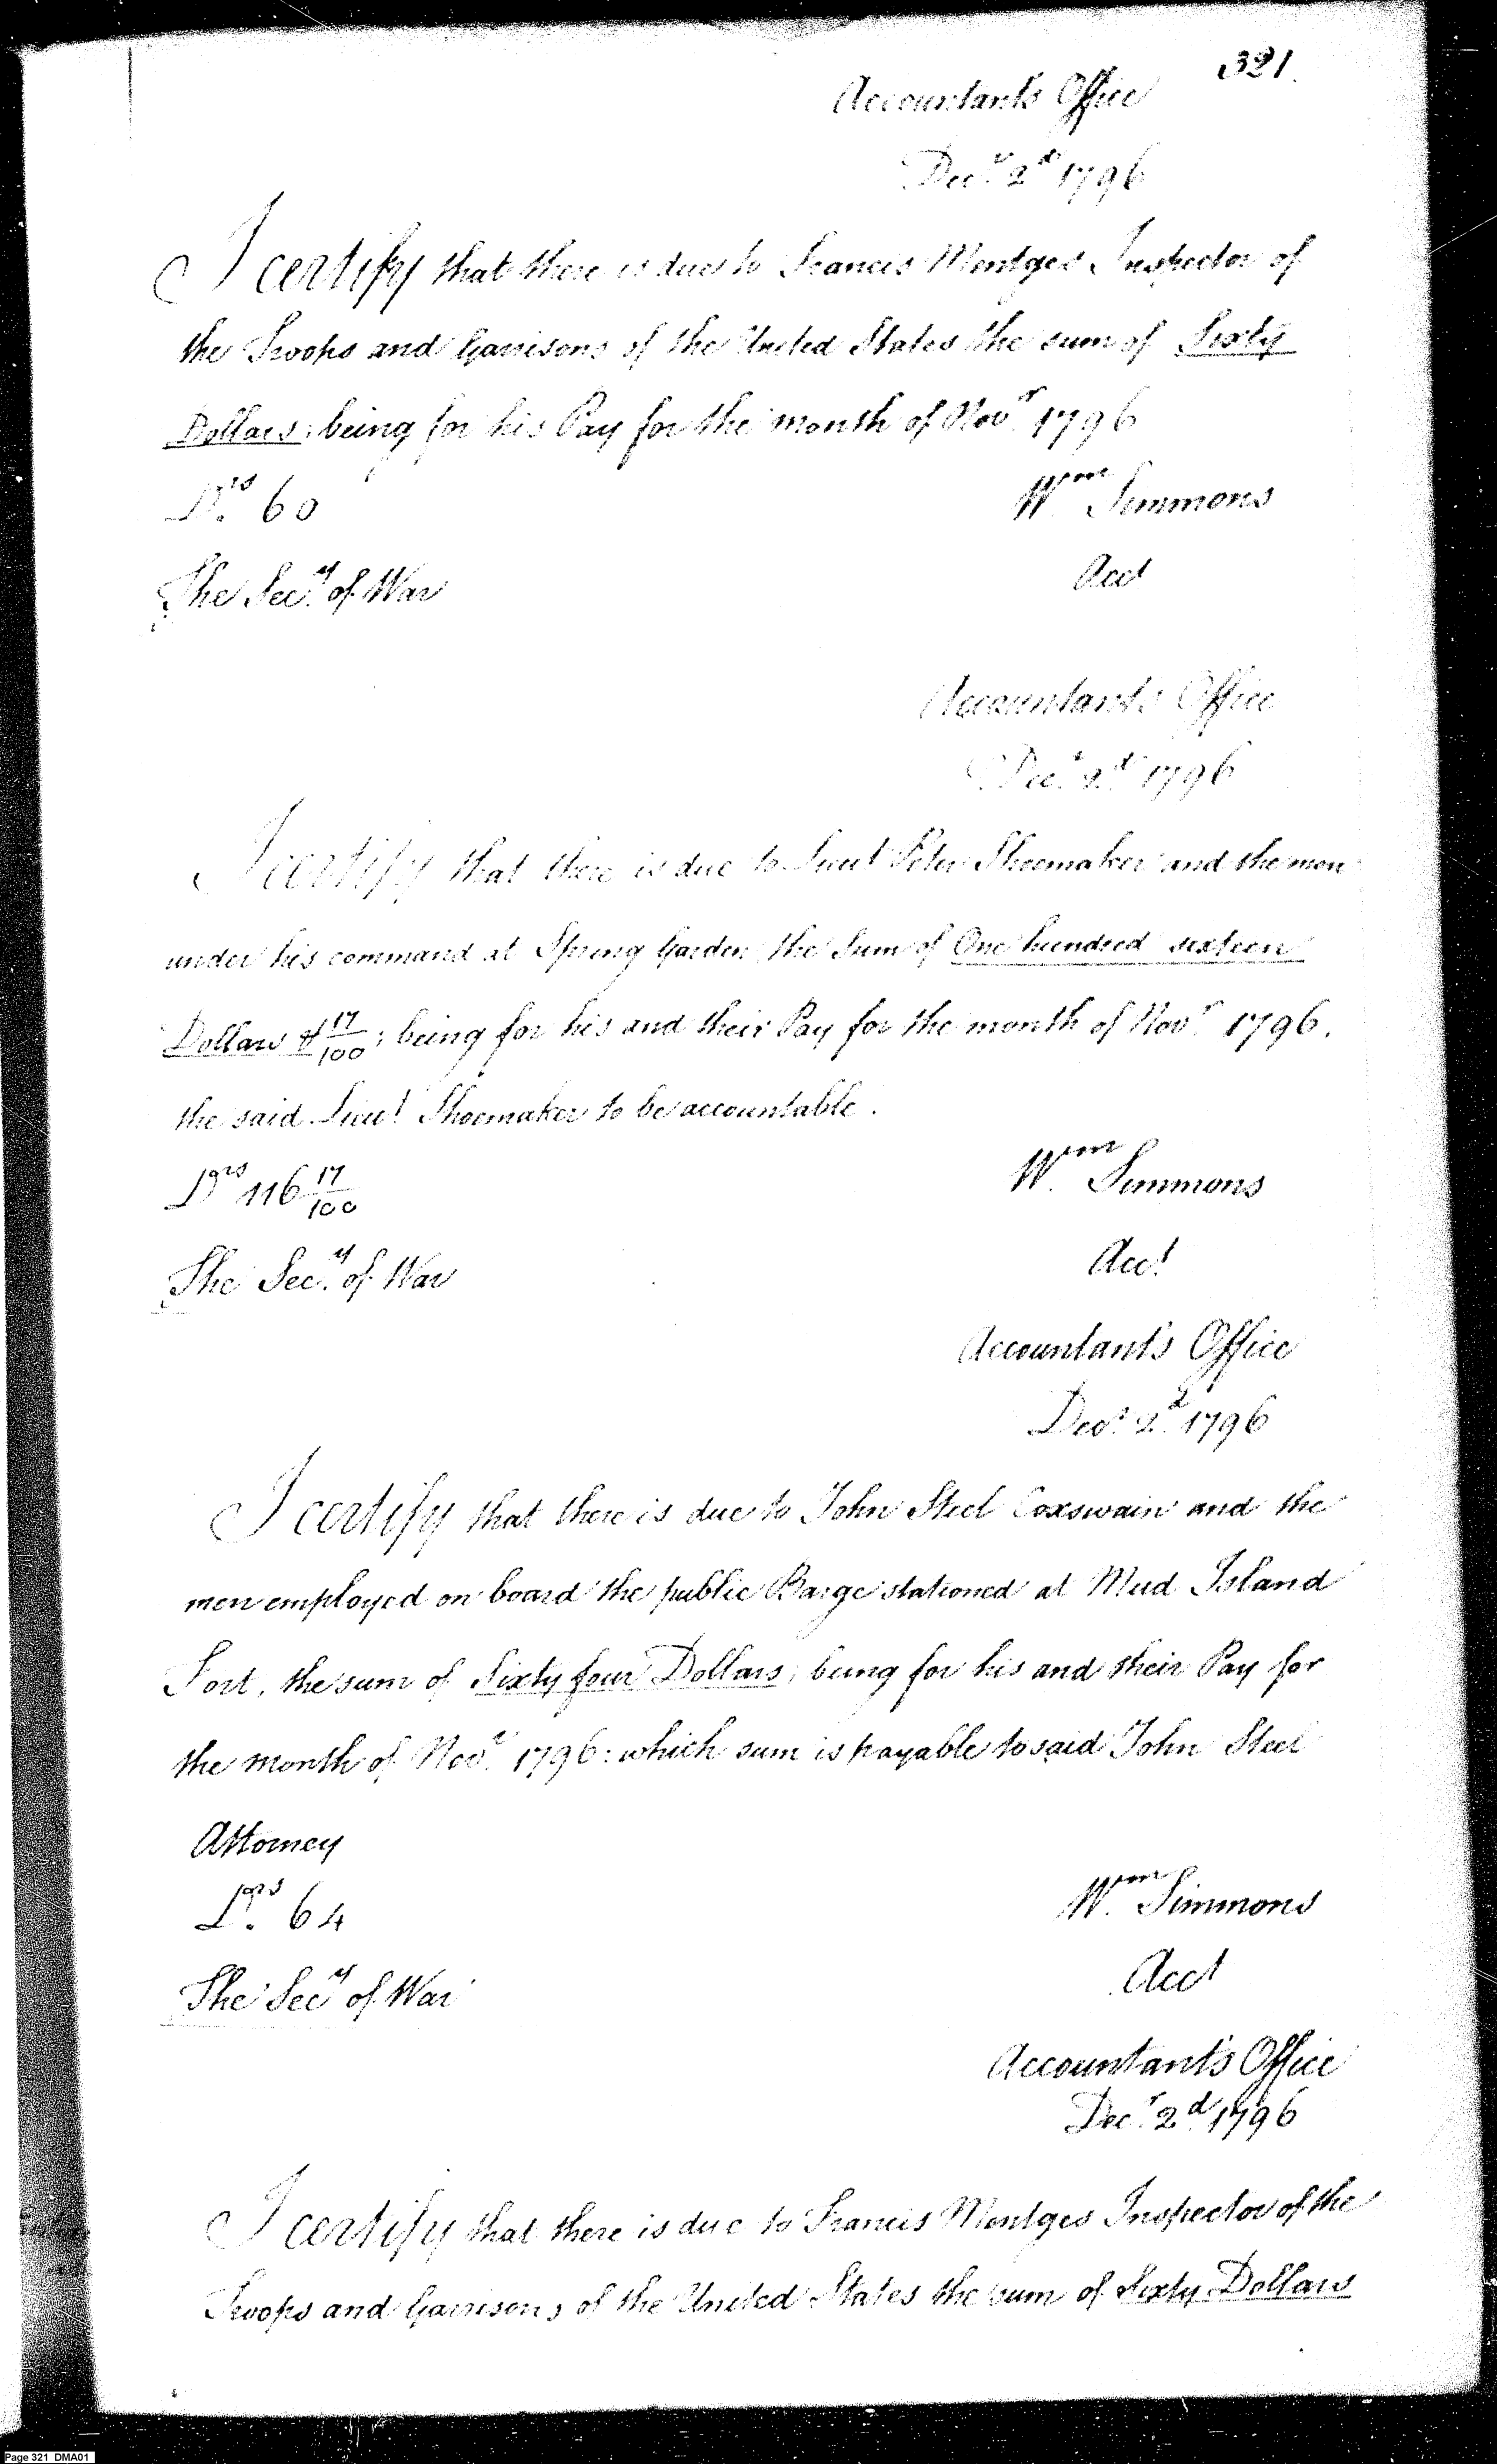 321.
Accountants Office
Decr 2d 1796
I certify that there is due to Francis Mentges Inspector of
the Troops and Garrisons of the United States the sum of Sixty
Dollars; being for his Pay for the month of Novr 1796
Drs 60
Wm Simmons
The Secy of War
Acct
Accountant's Office
Decr 2d 1796
I certify that there is due to Lieut Peter Shoemaker and the men
under his command at Spring Garden the Sum of One hundred sixteen
Dollars & 17/100; being for his and their Pay for the month of Novr 1796.
the said Lieut Shoemaker to be accountable.
Drs 116 17/100
Wm Simmons
The Secy of War
Acct
Accountant's Office
Decr 2d 1796
I certify that there is due to John Steel Coxswain and the
men employed on board the public Barge stationed at Mud Island
Fort, the sum of Sixty four Dollars; being for his and their Pay for
the month of Novr 1796: which sum is payable to said John Steel
Attorney
Drs 64
Wm Simmons
The Secy of War
Acct
Accountant's Office
Decr 2d 1796
I certify that there is due to Francis Mentges Inspector of the
Troops and Garrisons of the United States the sum of Sixty Dollars
Page 321 DMA01